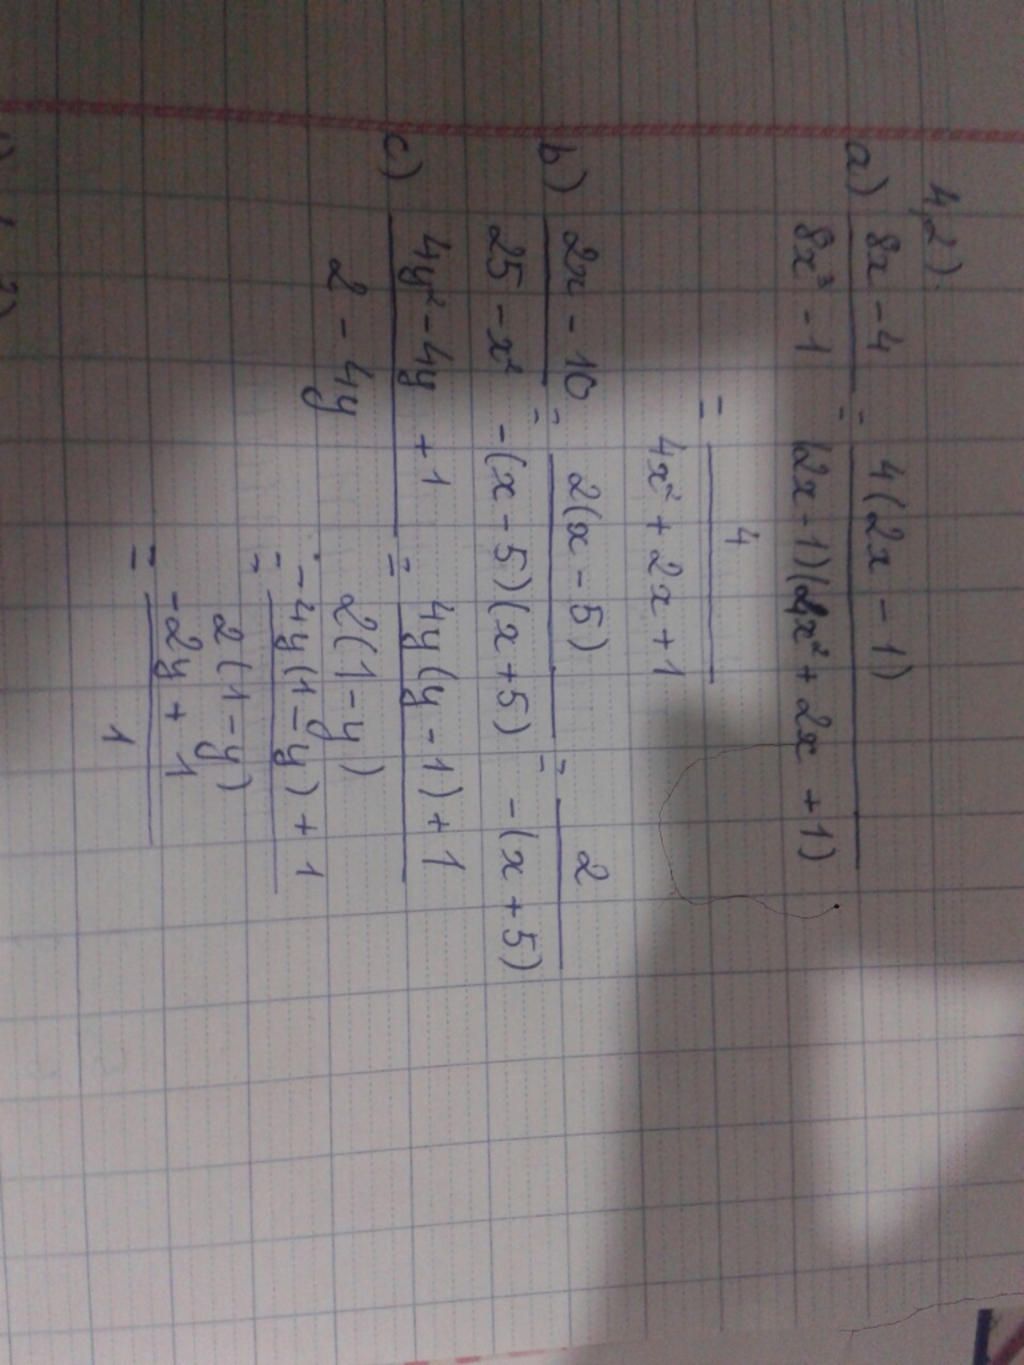 4,2)
a) 8x - 4 / 8x³ - 1 = 4(2x - 1) / (2x - 1)(4x² + 2x + 1)
= 4 / 4x² + 2x + 1
b) 2x - 10 / 25 - x² = 2(x - 5) / -(x - 5)(x + 5) = 2 / -(x + 5)
c) 4y² - 4y + 1 / 2 - 4y = 4y(y - 1) + 1 / 2(1 - y)
= -4y(1 - y) + 1 / 2(1 - y)
= -2y + 1 / 1